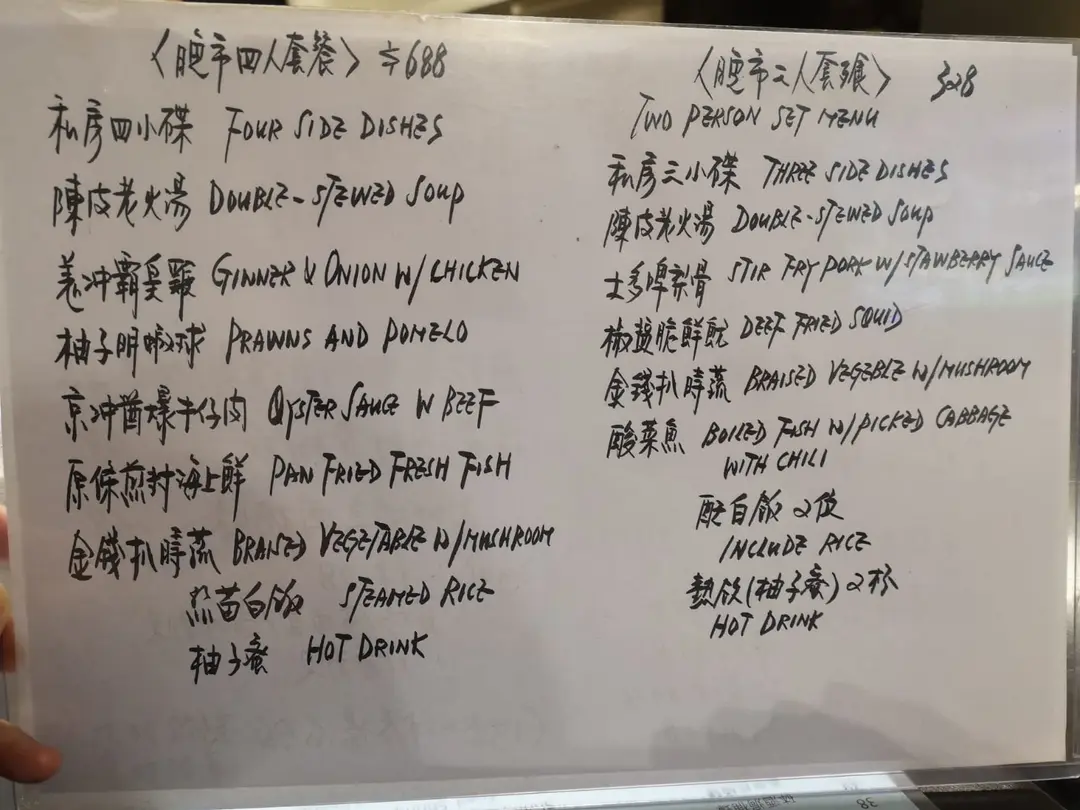 〈晚市四人套餐〉 $688
私房四小碟 FOUR SIDE DISHES
陳皮老火湯 DOUBLE-STEWED SOUP
羗冲霸皇雞 GINNER & ONION W/ CHICKEN
柚子明蝦球 PRAWNS AND POMELO
京冲酱爆牛仔肉 OYSTER SAUCE W BEEF
原條煎封海上鮮 PAN FRIED FRESH FISH
金錢扒時蔬 BRAISED VEGETABLE W/MUSHROOM
苗白飯 STEAMED RICE
柚子蜜 HOT DRINK
〈晚市二人套餐〉 328
TWO PERSON SET MENU
私房三小碟 THREE SIDE DISHES
陳皮老火湯 DOUBLE-STEWED SOUP
士多啤梨骨 STIR FRY PORK W/STAWBERRY SAUCE
椒盬脆鮮魷 DEEF FRIED SQUID
金錢扒時蔬 BRAISED VEGEBLE W/MUSHROOM
酸菜魚 BOILED FISH W/PICKED CABBAGE
WITH CHILI
配白飯 2位
INCLUDE RICE
熱飲(柚子蜜) 2杯
HOT DRINK